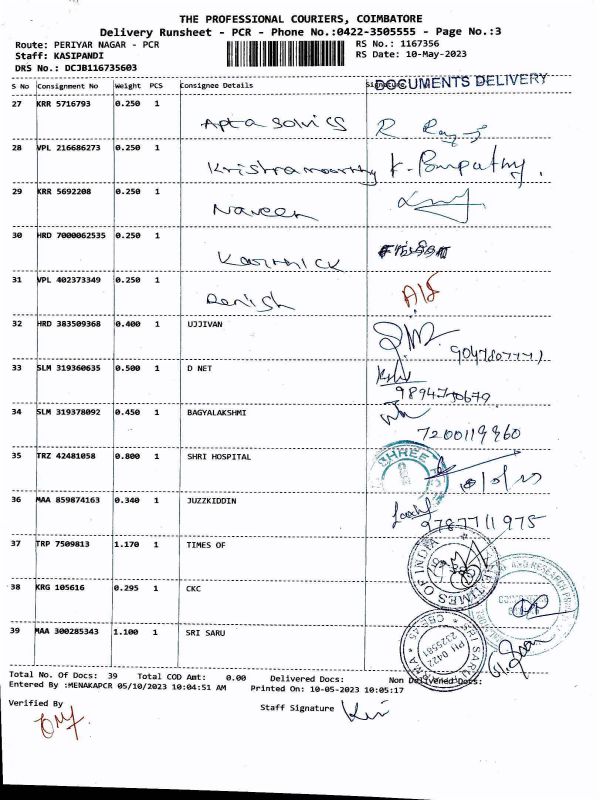 THE PROFESSIONAL COURIERS, COIMBATORE
Delivery Runsheet - PCR - Phone No.:0422-3505555 - Page No.:3
Route: PERIYAR NAGAR - PCR
RS No.: 1167356
Staff: KASIPANDI
RS Date: 10-May-2023
DRS No.: DCJB116735603
S No Consignment No Weight PCS Consignee Details
DOCUMENTS DELIVERY
27 KRR 5716793 0.250 1
28 VPL 216686273 0.250 1
29 KRR 5692208 0.250 1 Naveen
30 HRD 7000062535 0.250 1
31 VPL 402373349 0.250 1 Renish
32 HRD 383509368 0.400 1 UJJIVAN
33 SLM 319360635 0.500 1 D NET
34 SLM 319378092 0.450 1 BAGYALAKSHMI
7200119960
35 TRZ 42481058 0.800 1 SHRI HOSPITAL
SHREE
36 MAA 859874163 0.340 1 JUZZKIDDIN
9787711975
37 TRP 7509813 1.170 1 TIMES OF
TIMES OF INDIA
38 KRG 105616 0.295 1 CKC
AND RESEARCH
39 MAA 300285343 1.100 1 SRI SARU
SRI SARU
Total No. Of Docs: 39 Total COD Amt: 0.00 Delivered Docs: Non Delivered Docs:
Entered By :MENAKAPCR 05/10/2023 10:04:51 AM Printed On: 10-05-2023 10:05:17
Verified By
Staff Signature